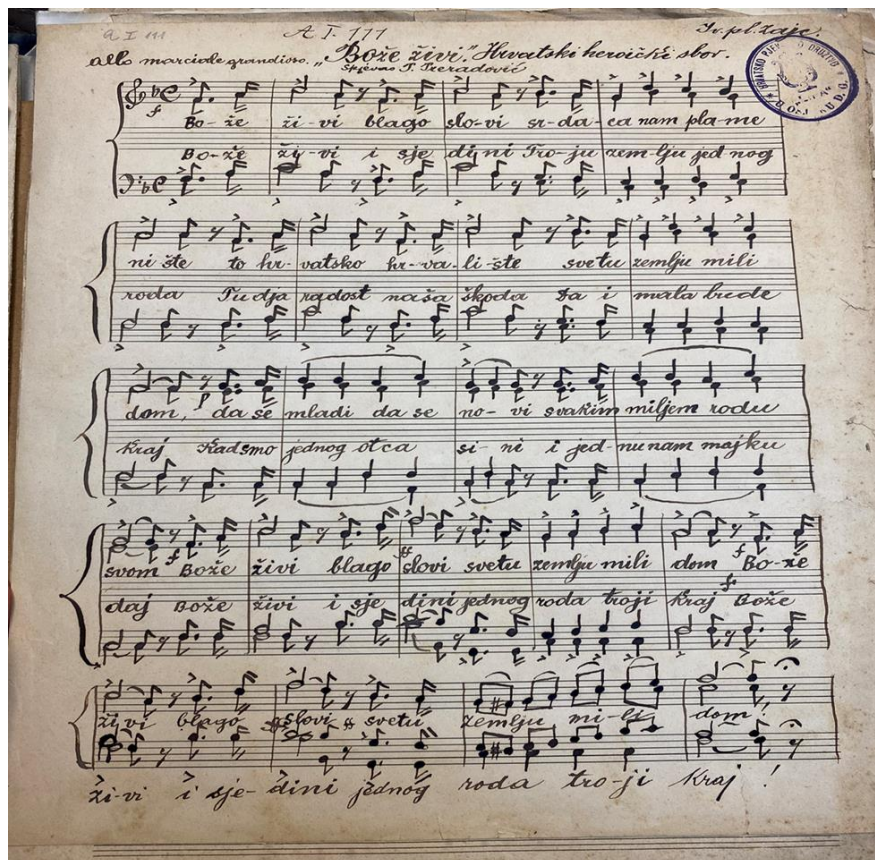 a I 111
A I. 111
Iv. pl. Zajc.
allo marciale grandioso. „Bože živi.” Hrvatski heroički sbor.
Spjevao P. Preradović
f
Bo- že ži- vi blago slo- vi sr- da- ca nam pla- me
Bo- že ži- vi i sje dini Tro- ju zem- lju jed nog
ni šte to hr- vatsko hr- va- li- šte svetu zemlju mili
roda Tudja radost naša škoda Da i mala bude
p
dom, da se mladi da se no- vi svakim miljem rodu
kraj Kad smo jednog otca si- ni i jed- nu nam majku
f f
svom Bože živi blago slovi svetu zemlju mili dom Bo- že
f
daj Bože živi i sje dini jednog roda troji kraj Bože
živi blago slovi svetu zemlju mi- li dom,
ži- vi i sje- dini jednog roda tro- ji kraj !